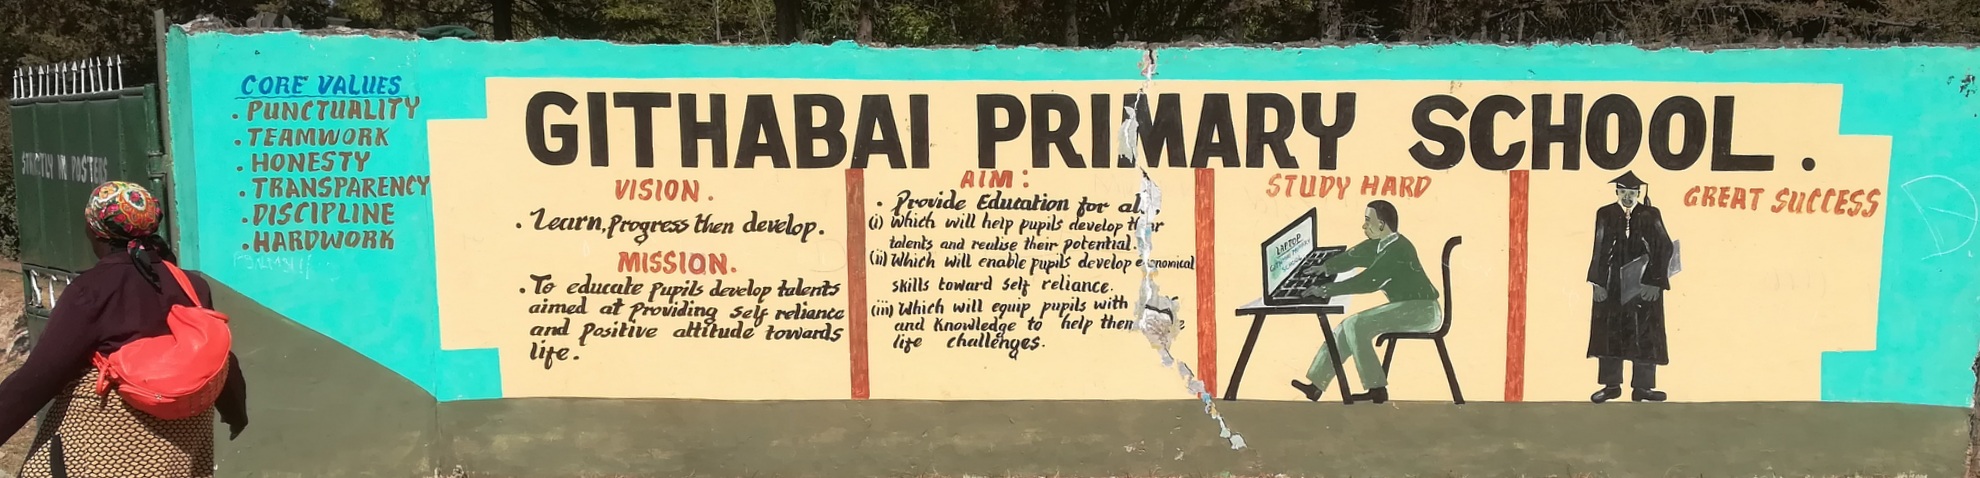 STRICTLY NO POSTERS
CORE VALUES
. PUNCTUALITY
. TEAMWORK
. HONESTY
. TRANSPARENCY
. DISCIPLINE
. HARDWORK
GITHABAI PRIMARY SCHOOL.
VISION.
. Learn, Progress then develop.
MISSION.
. To educate pupils develop talents
aimed at Providing self reliance
and Positive attitude towards
life.
AIM:
. Provide Education for al
(i) Which will help pupils develop
talents and realise their potential.
(ii) Which will enable pupils develop
skills toward self reliance.
(iii) Which will equip pupils with
and Knowledge to help
life challenges.
STUDY HARD
LAPTOP
SCHOOL
GREAT SUCCESS